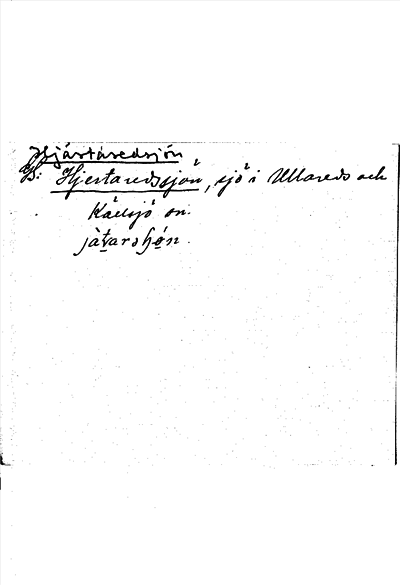 Hjärtaredsjön
Hjertaredssjön, sjö i Ullareds och
Källsjö sn.